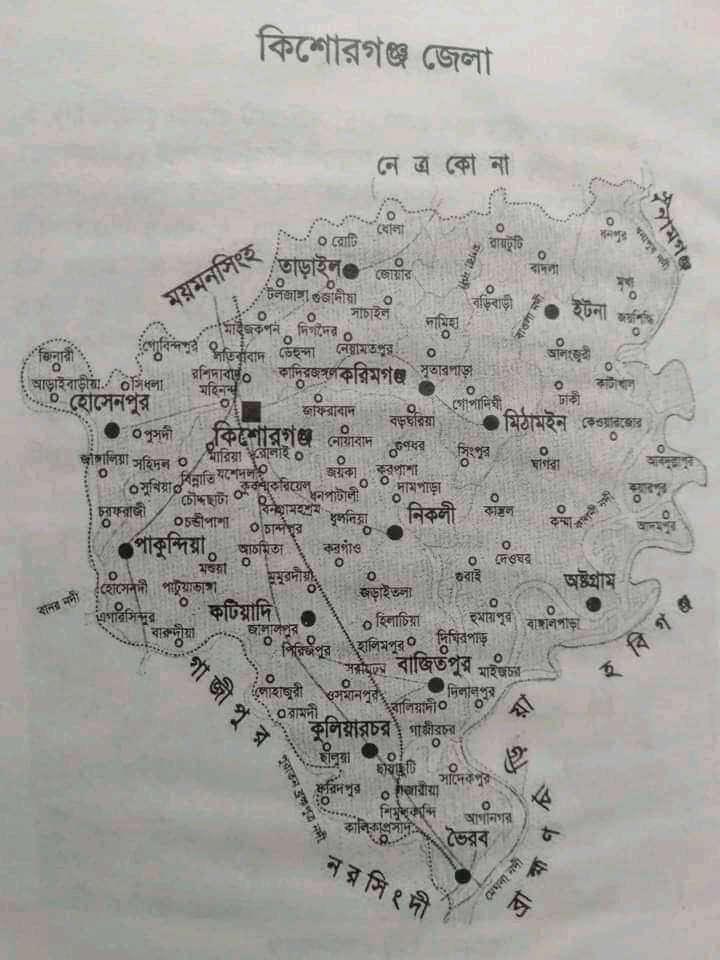 কিশোরগঞ্জ জেলা
নে ত্র কো না
সুনামগঞ্জ
ময়মনসিংহ
ধোলা
রোটি
রায়টুটি
ধনপুর
ধনপুর নদী
তাড়াইল
জোয়ার
বাদলা
মৃগা
টলজাঙ্গা গুজাদীয়া
সাচাইল
বড়িবাড়ী
ইটনা
জয়শিদ্ধি
মাইজকপন
দিগদৈর
দামিহা
গোবিন্দপুর
লতিবাবাদ
ডেহুন্দা
নেয়ামতপুর
আলংজুরী
জিনারী
রশিদাবাদ
কাদিরজঙ্গল
করিমগঞ্জ
সুতারপাড়া
কাটাখাল
আড়াইবাড়ীয়া
সিধলা
মহিনন্দ
ঢাকী
হোসেনপুর
জাফরাবাদ
গোপাদিঘী
বড়ঘরিয়া
মিঠামইন
কেওয়ারজোর
পুমদী
কিশোরগঞ্জ
নোয়াবাদ
গুণধর
সিংপুর
জাঙ্গালিয়া
সহিদল
মারিয়া
রোলাই
ঘাগরা
আবদুল্লাপুর
সুখিয়া
বিন্নাতি
যশোদল
জয়কা
করপাশা
চৌদ্দছাটা
ধনপাটালী
দামপাড়া
কয়ারপুর
চরফরাজী
চন্ডীপাশা
চান্দপুর
ধুলদিয়া
নিকলী
কাস্তুল
কন্মা
আদমপুর
পাকুন্দিয়া
আচমিতা
করগাঁও
দেওঘর
মশুয়া
মুমুরদীয়া
গুরাই
অষ্টগ্রাম
হোসেনদী
পাটুয়াভাঙ্গা
জড়াইতলা
বানর নদী
এগারসিন্দুর
কটিয়াদি
হিলাচিয়া
হুমায়পুর
বাঙ্গালপাড়া
বারুদীয়া
জালালপুর
পিরিজপুর
হালিমপুর
দিঘিরপাড়
হ বি গ ঞ্জ
গা জী পু র
সরারচর
বাজিতপুর
মাইজচর
লোহাজুরী
ওসমানপুর
দিলালপুর
রামদী
বালিয়াদী
কুলিয়ারচর
গাজীরচর
ছালুয়া
ছয়ছুটি
সাদেকপুর
পুরাতন ব্রহ্মপুত্র নদী
ফরিদপুর
গজারীয়া
শিমুলকান্দি
আগানগর
কালিকাপ্রসাদ
ভৈরব
মেঘনা নদী
ন র সিং দী
ব্রা হ্ম ণ বা ড়ি য়া